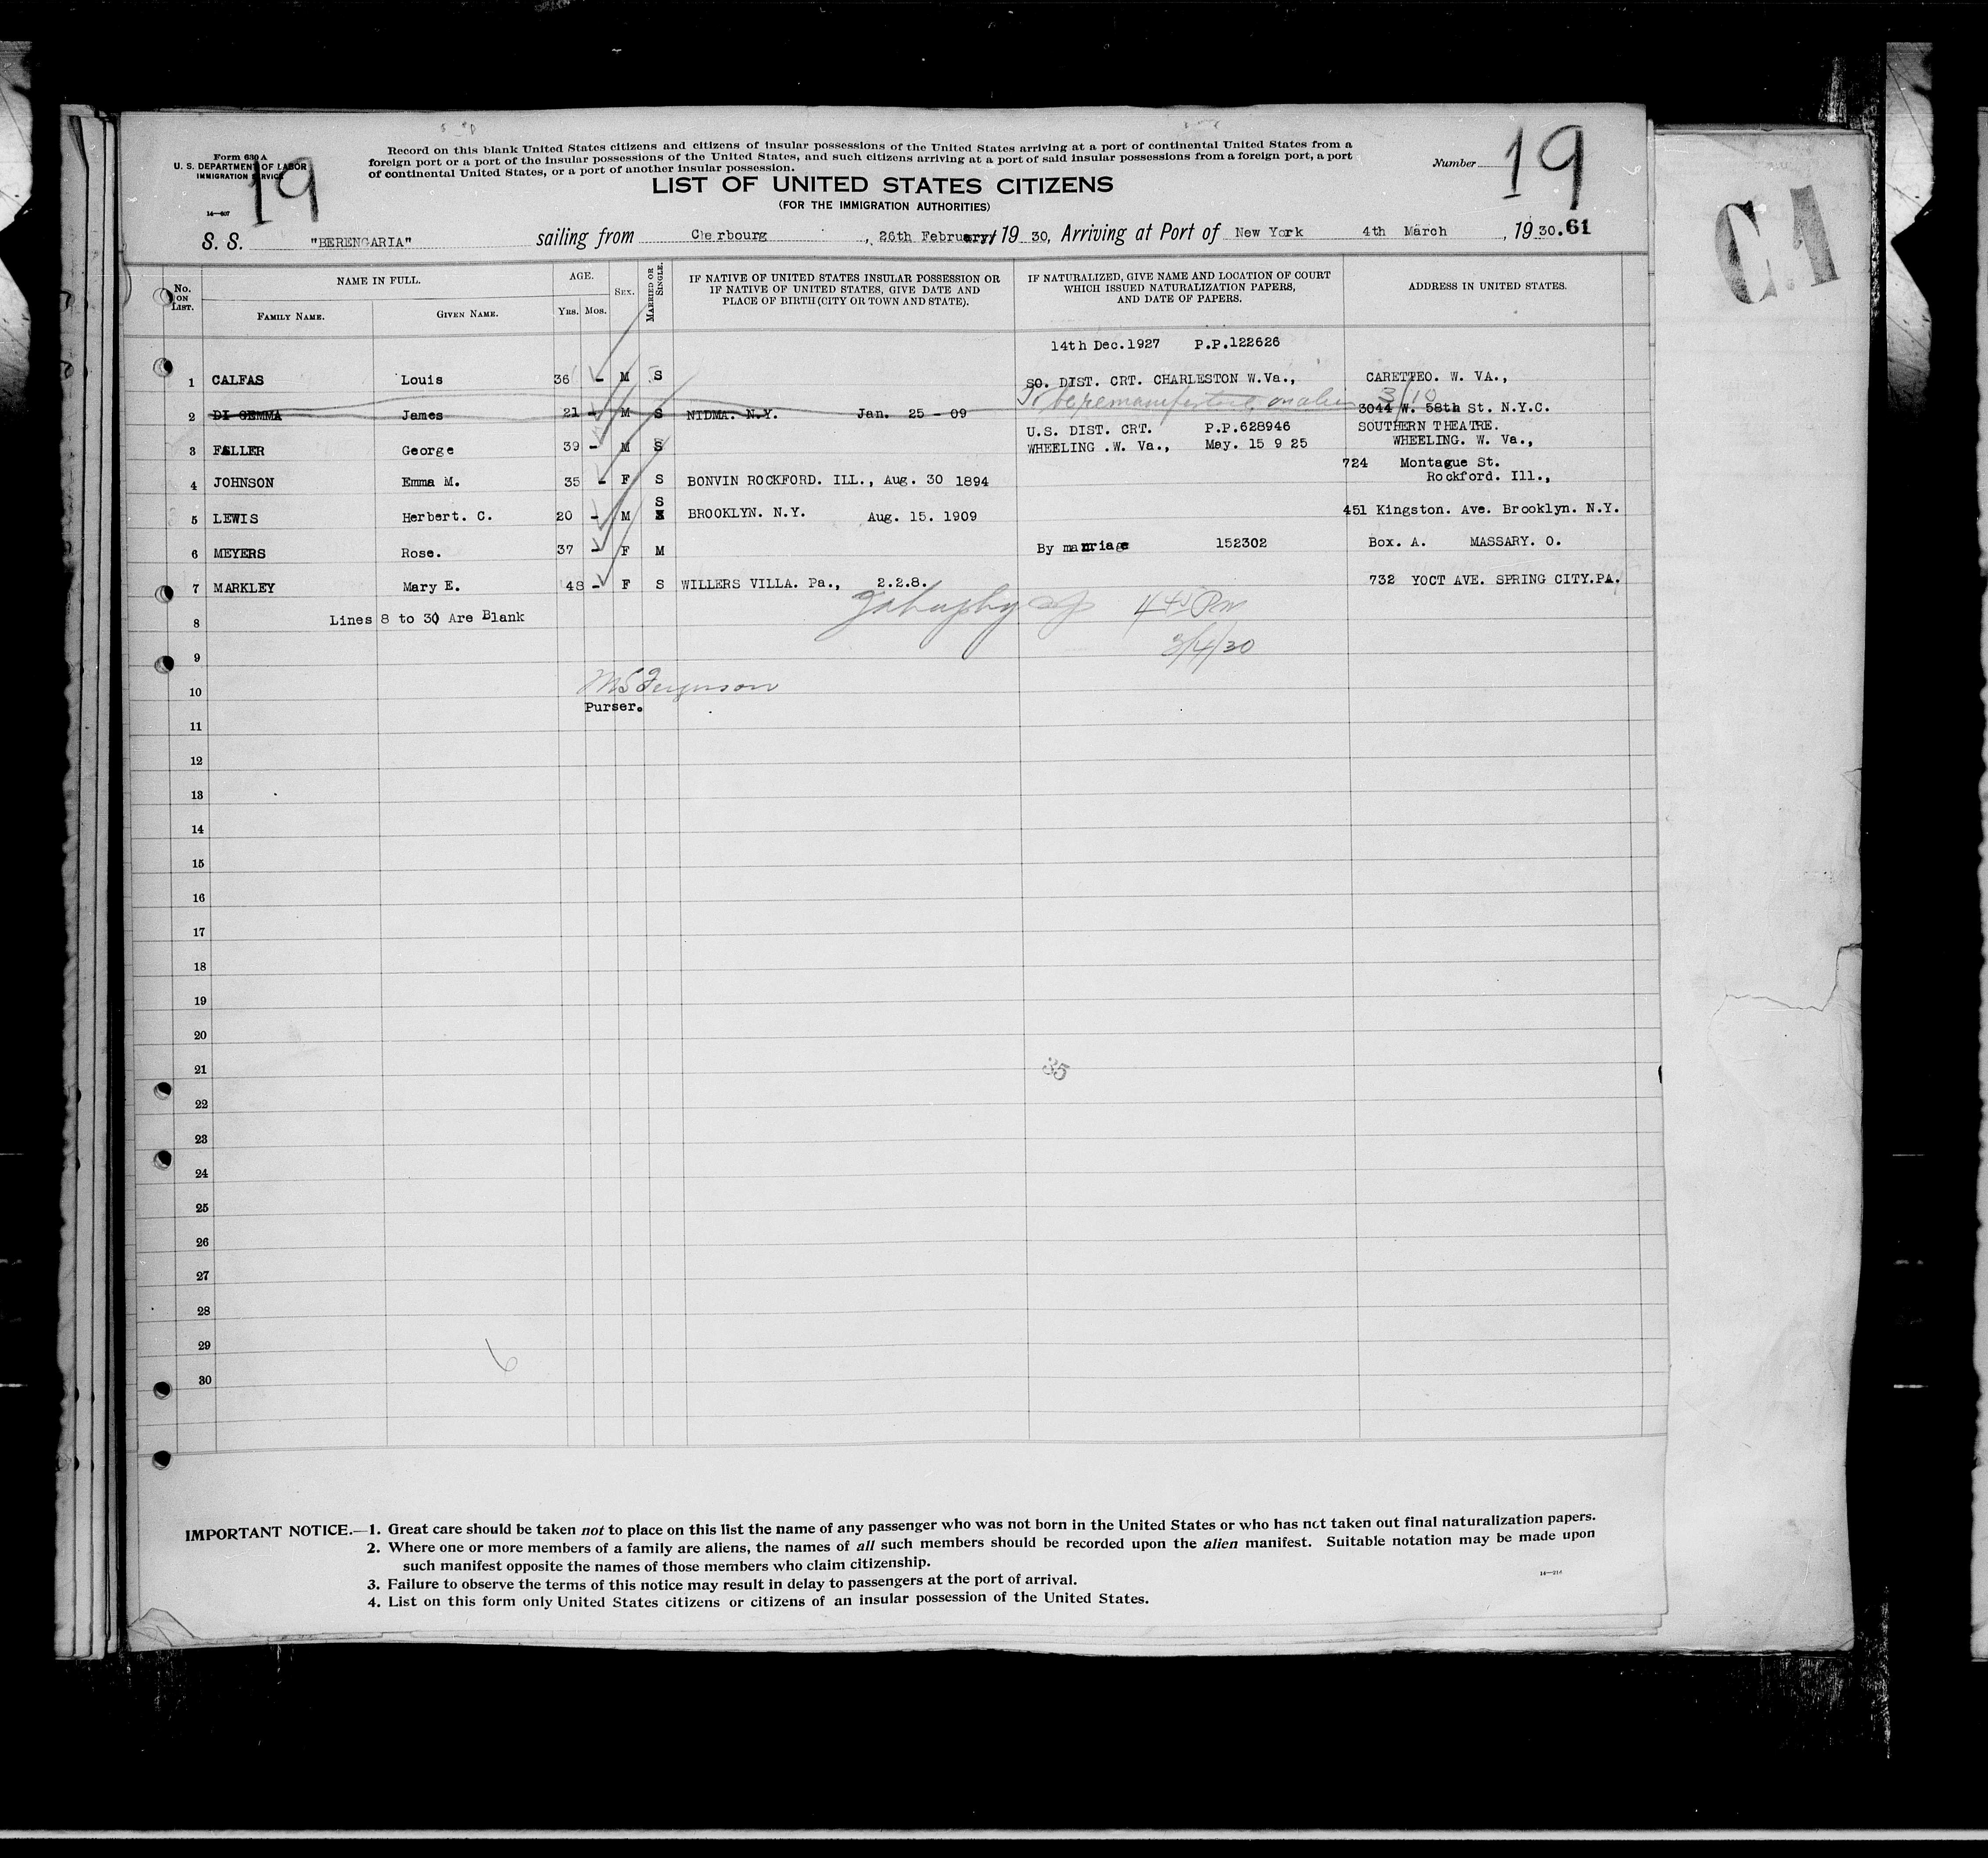 Form 630 A
U. S. DEPARTMENT OF LABOR
IMMIGRATION SERVICE
19
14—407
Record on this blank United States citizens and citizens of insular possessions of the United States arriving at a port of continental United States from a
foreign port or a port of the insular possessions of the United States, and such citizens arriving at a port of said insular possessions from a foreign port, a port
of continental United States, or a port of another insular possession.
Number 19
LIST OF UNITED STATES CITIZENS
(FOR THE IMMIGRATION AUTHORITIES)
S. S. "BERENGARIA" sailing from Cherbourg , 26th February, 19 30, Arriving at Port of New York 4th March , 19 30. 61
No. ON LIST.
NAME IN FULL.
FAMILY NAME. GIVEN NAME.
AGE.
YRS. MOS.
SEX.
MARRIED OR SINGLE.
IF NATIVE OF UNITED STATES INSULAR POSSESSION OR
IF NATIVE OF UNITED STATES, GIVE DATE AND
PLACE OF BIRTH (CITY OR TOWN AND STATE).
IF NATURALIZED, GIVE NAME AND LOCATION OF COURT
WHICH ISSUED NATURALIZATION PAPERS,
AND DATE OF PAPERS.
ADDRESS IN UNITED STATES.
14th Dec.1927 P.P.122626
1 CALFAS Louis 36 - M S SO. DIST. CRT. CHARLESTON W.Va., CARETTEO. W. VA.,
To be remanifested on alien 3/10
2 DI GEMMA James 21 - M S NIDMA. N.Y. Jan. 25 - 09 3044 W. 58th St. N.Y.C.
U.S. DIST. CRT. P.P.628946 SOUTHERN THEATRE.
3 FALLER George 39 - M S WHEELING .W. Va., May. 15 9 25 WHEELING. W. Va.,
724 Montague St.
4 JOHNSON Emma M. 35 - F S BONVIN ROCKFORD. ILL., Aug. 30 1894 Rockford. Ill.,
S
5 LEWIS Herbert. C. 20 - M BROOKLYN. N.Y. Aug. 15. 1909 451 Kingston. Ave. Brooklyn. N.Y.
6 MEYERS Rose. 37 - F M By marriage 152302 Box. A. MASSARY. O.
7 MARKLEY Mary E. 48 - F S WILLERS VILLA. Pa., 2.2.8. 732 YOCT AVE. SPRING CITY.PA.
8 Lines 8 to 30 Are Blank
3/4/30
9
10 Ferguson
Purser.
11
12
13
14
15
16
17
18
19
20
21 35
22
23
24
25
26
27
28
29
6
30
IMPORTANT NOTICE.—1. Great care should be taken not to place on this list the name of any passenger who was not born in the United States or who has not taken out final naturalization papers.
2. Where one or more members of a family are aliens, the names of all such members should be recorded upon the alien manifest. Suitable notation may be made upon
such manifest opposite the names of those members who claim citizenship.
3. Failure to observe the terms of this notice may result in delay to passengers at the port of arrival.
4. List on this form only United States citizens or citizens of an insular possession of the United States.